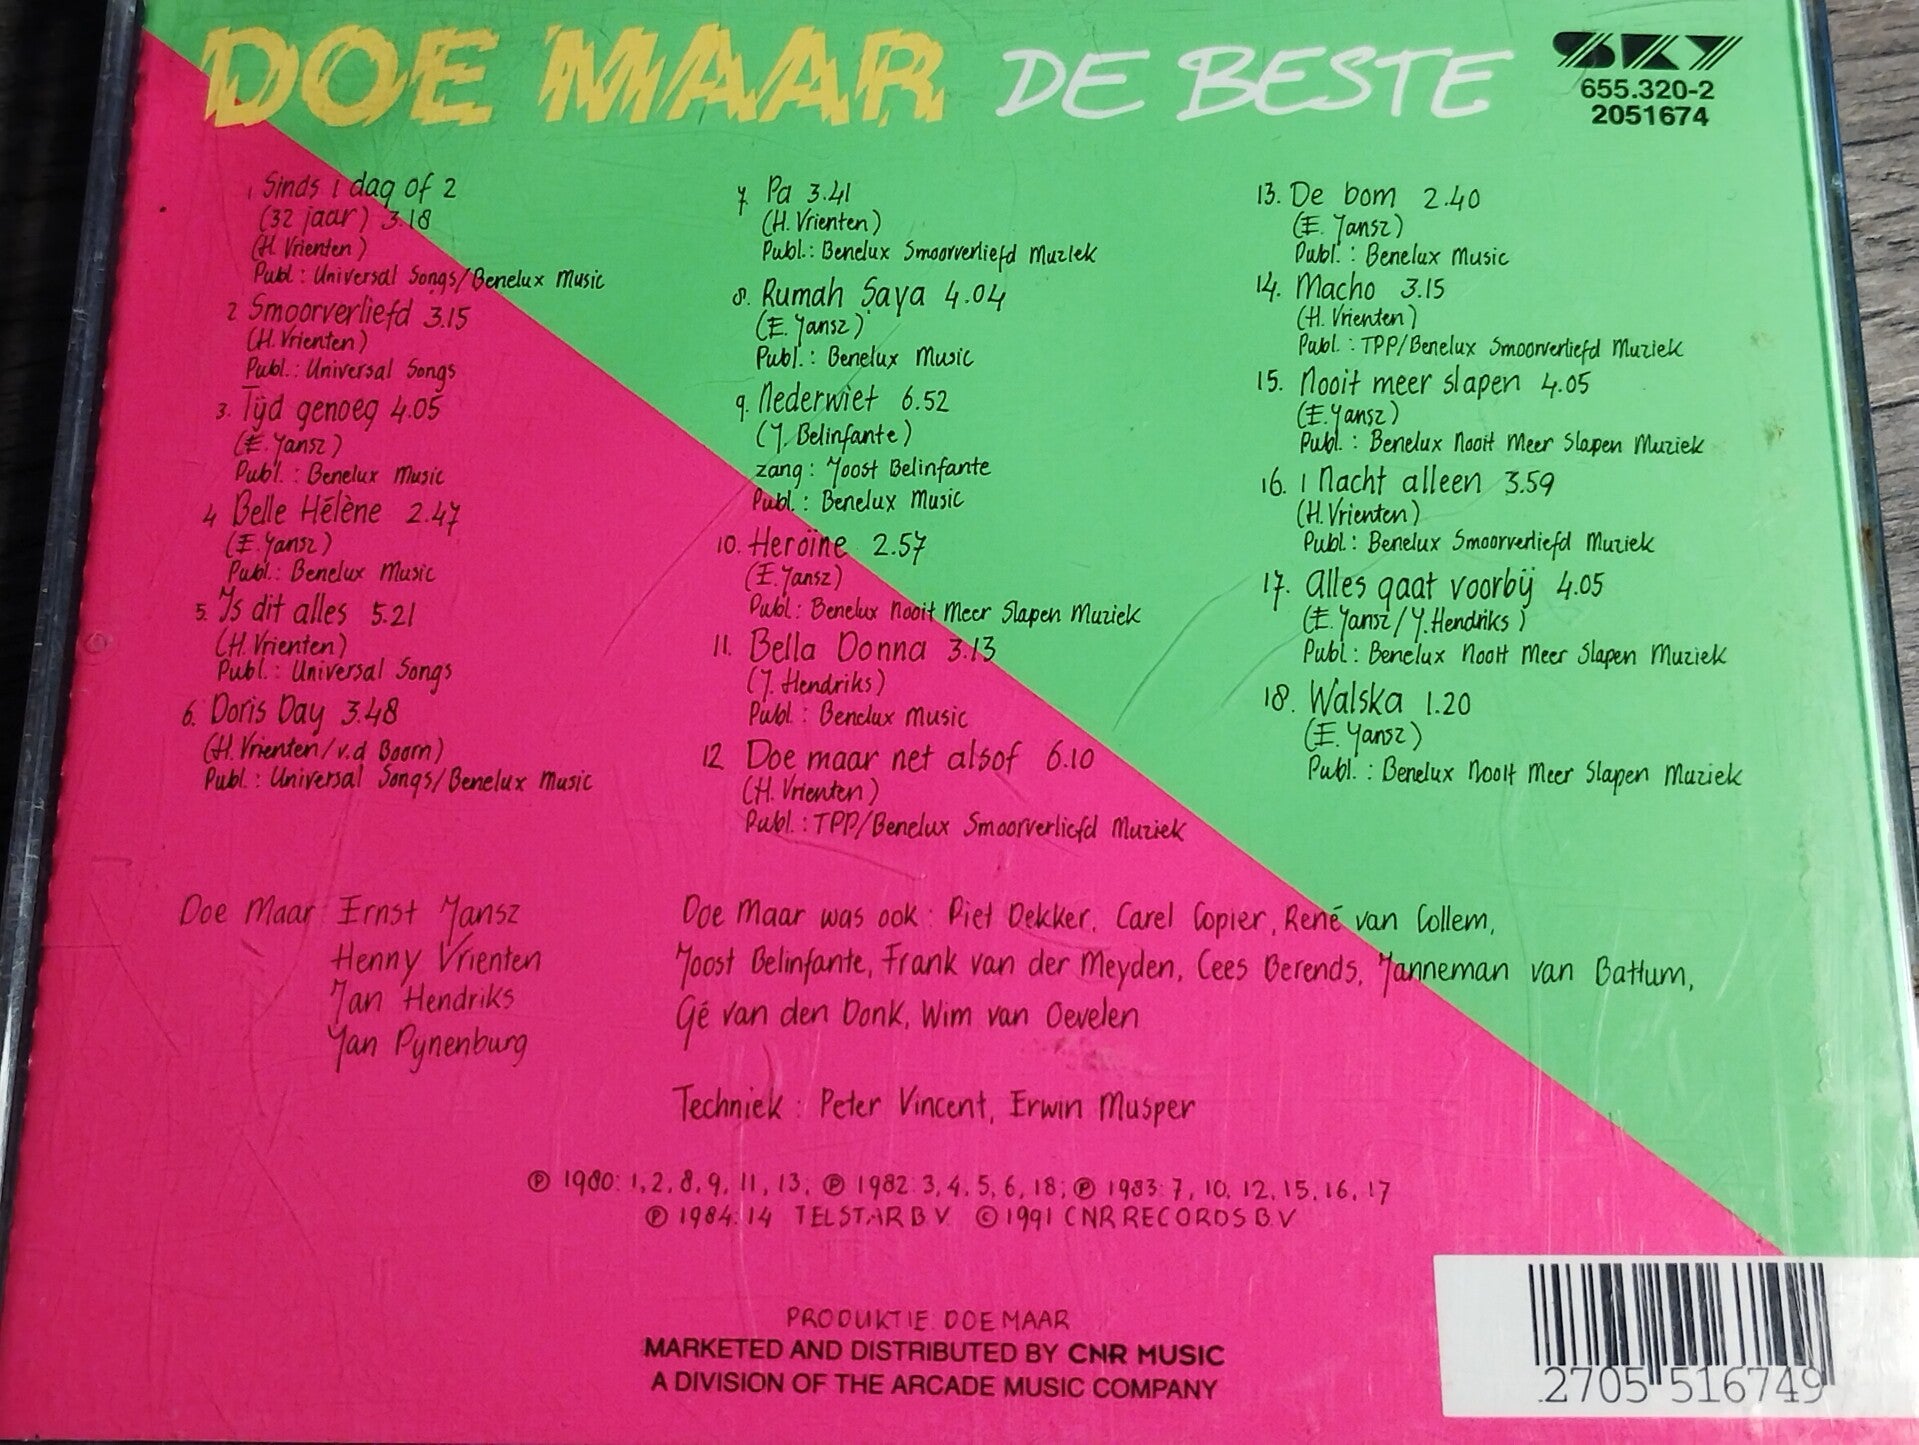 DOE MAAR DE BESTE
SKY
655.320-2
2051674
1 Sinds 1 dag of 2
(32 jaar) 3.18
(H. Vrienten)
Publ.: Universal Songs/Benelux Music
2 Smoorverliefd 3.15
(H. Vrienten)
Publ.: Universal Songs
3. Tijd genoeg 4.05
(E. Jansz)
Publ.: Benelux Music
4 Belle Hélène 2.47
(E. Jansz)
Publ.: Benelux Music
5. Is dit alles 5.21
(H. Vrienten)
Publ.: Universal Songs
6. Doris Day 3.48
(H. Vrienten/v.d Boom)
Publ.: Universal Songs/Benelux Music
7. Pa 3.41
(H. Vrienten)
Publ.: Benelux Smoorverliefd Muziek
8. Rumah Saya 4.04
(E. Jansz)
Publ.: Benelux Music
9. Nederwiet 6.52
(J. Belinfante)
zang: Joost Belinfante
Publ.: Benelux Music
10. Heroïne 2.57
(E. Jansz)
Publ.: Benelux Nooit Meer Slapen Muziek
11. Bella Donna 3.13
(J. Hendriks)
Publ.: Benelux Music
12 Doe maar net alsof 6.10
(H. Vrienten)
Publ.: TPP/Benelux Smoorverliefd Muziek
13. De bom 2.40
(E. Jansz)
Publ.: Benelux Music
14. Macho 3.15
(H. Vrienten)
Publ.: TPP/Benelux Smoorverliefd Muziek
15. Nooit meer slapen 4.05
(E. Jansz)
Publ.: Benelux Nooit Meer Slapen Muziek
16. 1 Nacht alleen 3.59
(H. Vrienten)
Publ.: Benelux Smoorverliefd Muziek
17. Alles gaat voorbij 4.05
(E. Jansz/J. Hendriks)
Publ.: Benelux Nooit Meer Slapen Muziek
18. Walska 1.20
(E. Jansz)
Publ.: Benelux Nooit Meer Slapen Muziek
Doe Maar: Ernst Jansz
Henny Vrienten
Jan Hendriks
Jan Pijnenburg
Doe Maar was ook: Piet Dekker, Carel Copier, René van Collem,
Joost Belinfante, Frank van der Meyden, Cees Berends, Janneman van Battum,
Gé van den Donk, Wim van Oevelen
Techniek: Peter Vincent, Erwin Musper
℗ 1980: 1, 2, 8, 9, 11, 13; ℗ 1982: 3, 4, 5, 6, 18; ℗ 1983: 7, 10, 12, 15, 16, 17
℗ 1984: 14 TELSTAR B.V. © 1991 CNR RECORDS B.V
PRODUKTIE: DOE MAAR
MARKETED AND DISTRIBUTED BY CNR MUSIC
A DIVISION OF THE ARCADE MUSIC COMPANY
2705 516749